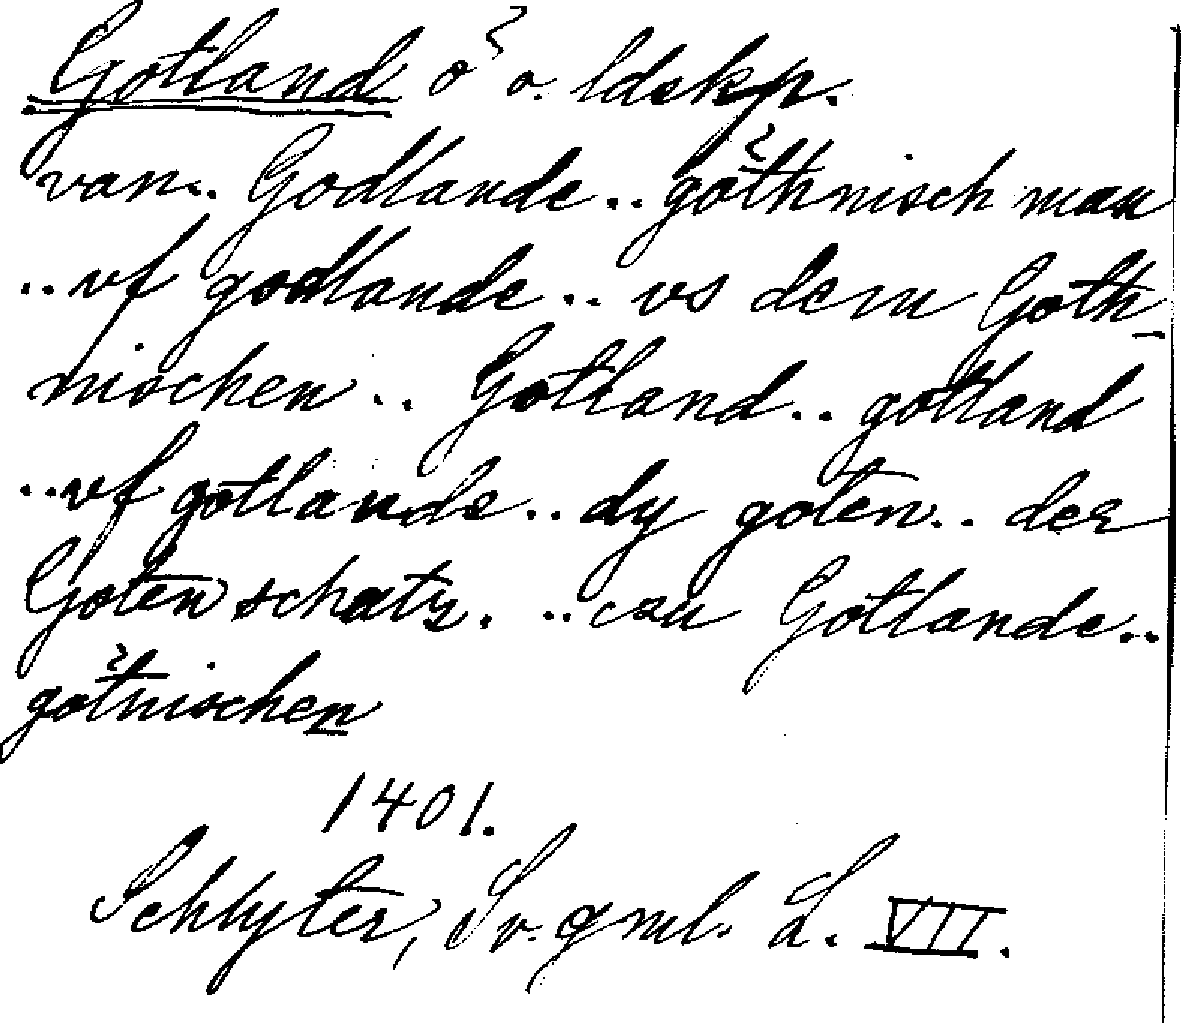 Gotland ö o. ldskp.
van.. Godlande.. göthnisch man
..vf godlande.. vs dem Goth-
nischen .. Gotland.. gotland
..vf gotlande.. dy goten.. der
Goten schatz. ..czu Gotlande..
götnischen
1401.
Schlyter, Sv. gml. L. VII.